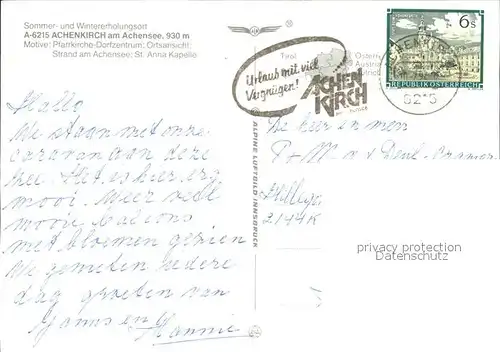 Sommer- und Wintererholungsort
A-6215 ACHENKIRCH am Achensee, 930 m
Motive: Pfarrkirche-Dorfzentrum; Ortsansicht;
Strand am Achensee; St. Anna Kapelle
Tirol
Österr
Austria
Urlaub mit viel
Vergnügen!
ACHEN
KIRCH
ACHENKIRCH
6215
6 S
REPUBLIK ÖSTERREICH
ALPINE LUFTBILD INNSBRUCK
Hallo
We staan met onze
caravan aan deze
mee. Het is hier erg
mooi. Meer veel
mooie balcons
met bloemen gezien
We genieten iedere
dag groeten van
en Hannie
De hier en men
P + W v d
2144K
privacy protection
Datenschutz